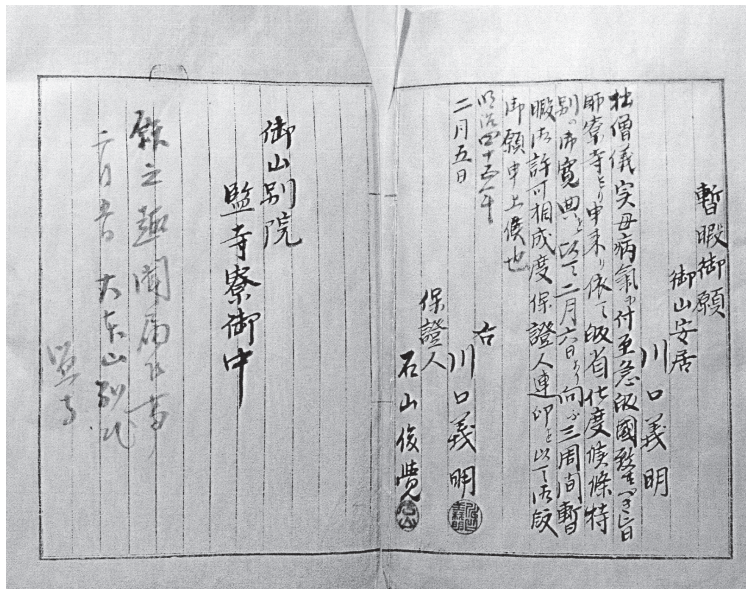 暫暇御願
御山安居
川口義明
拙僧儀実母病氣ニ付至急皈國致スヘキ旨
師寮寺ヨリ申来リ依テ皈省仕度候條特
別ノ御寛典ヲ以テ二月六日ヨリ向フ三周間暫
暇御許可相成度保證人連印ヲ以テ此段
御願申上候也
明治四十五年
二月五日
右
川口義明
保證人
石山俊覺
御山別院
監寺寮御中
願之趣聞届候事
二月五日
大本山別院
監寺